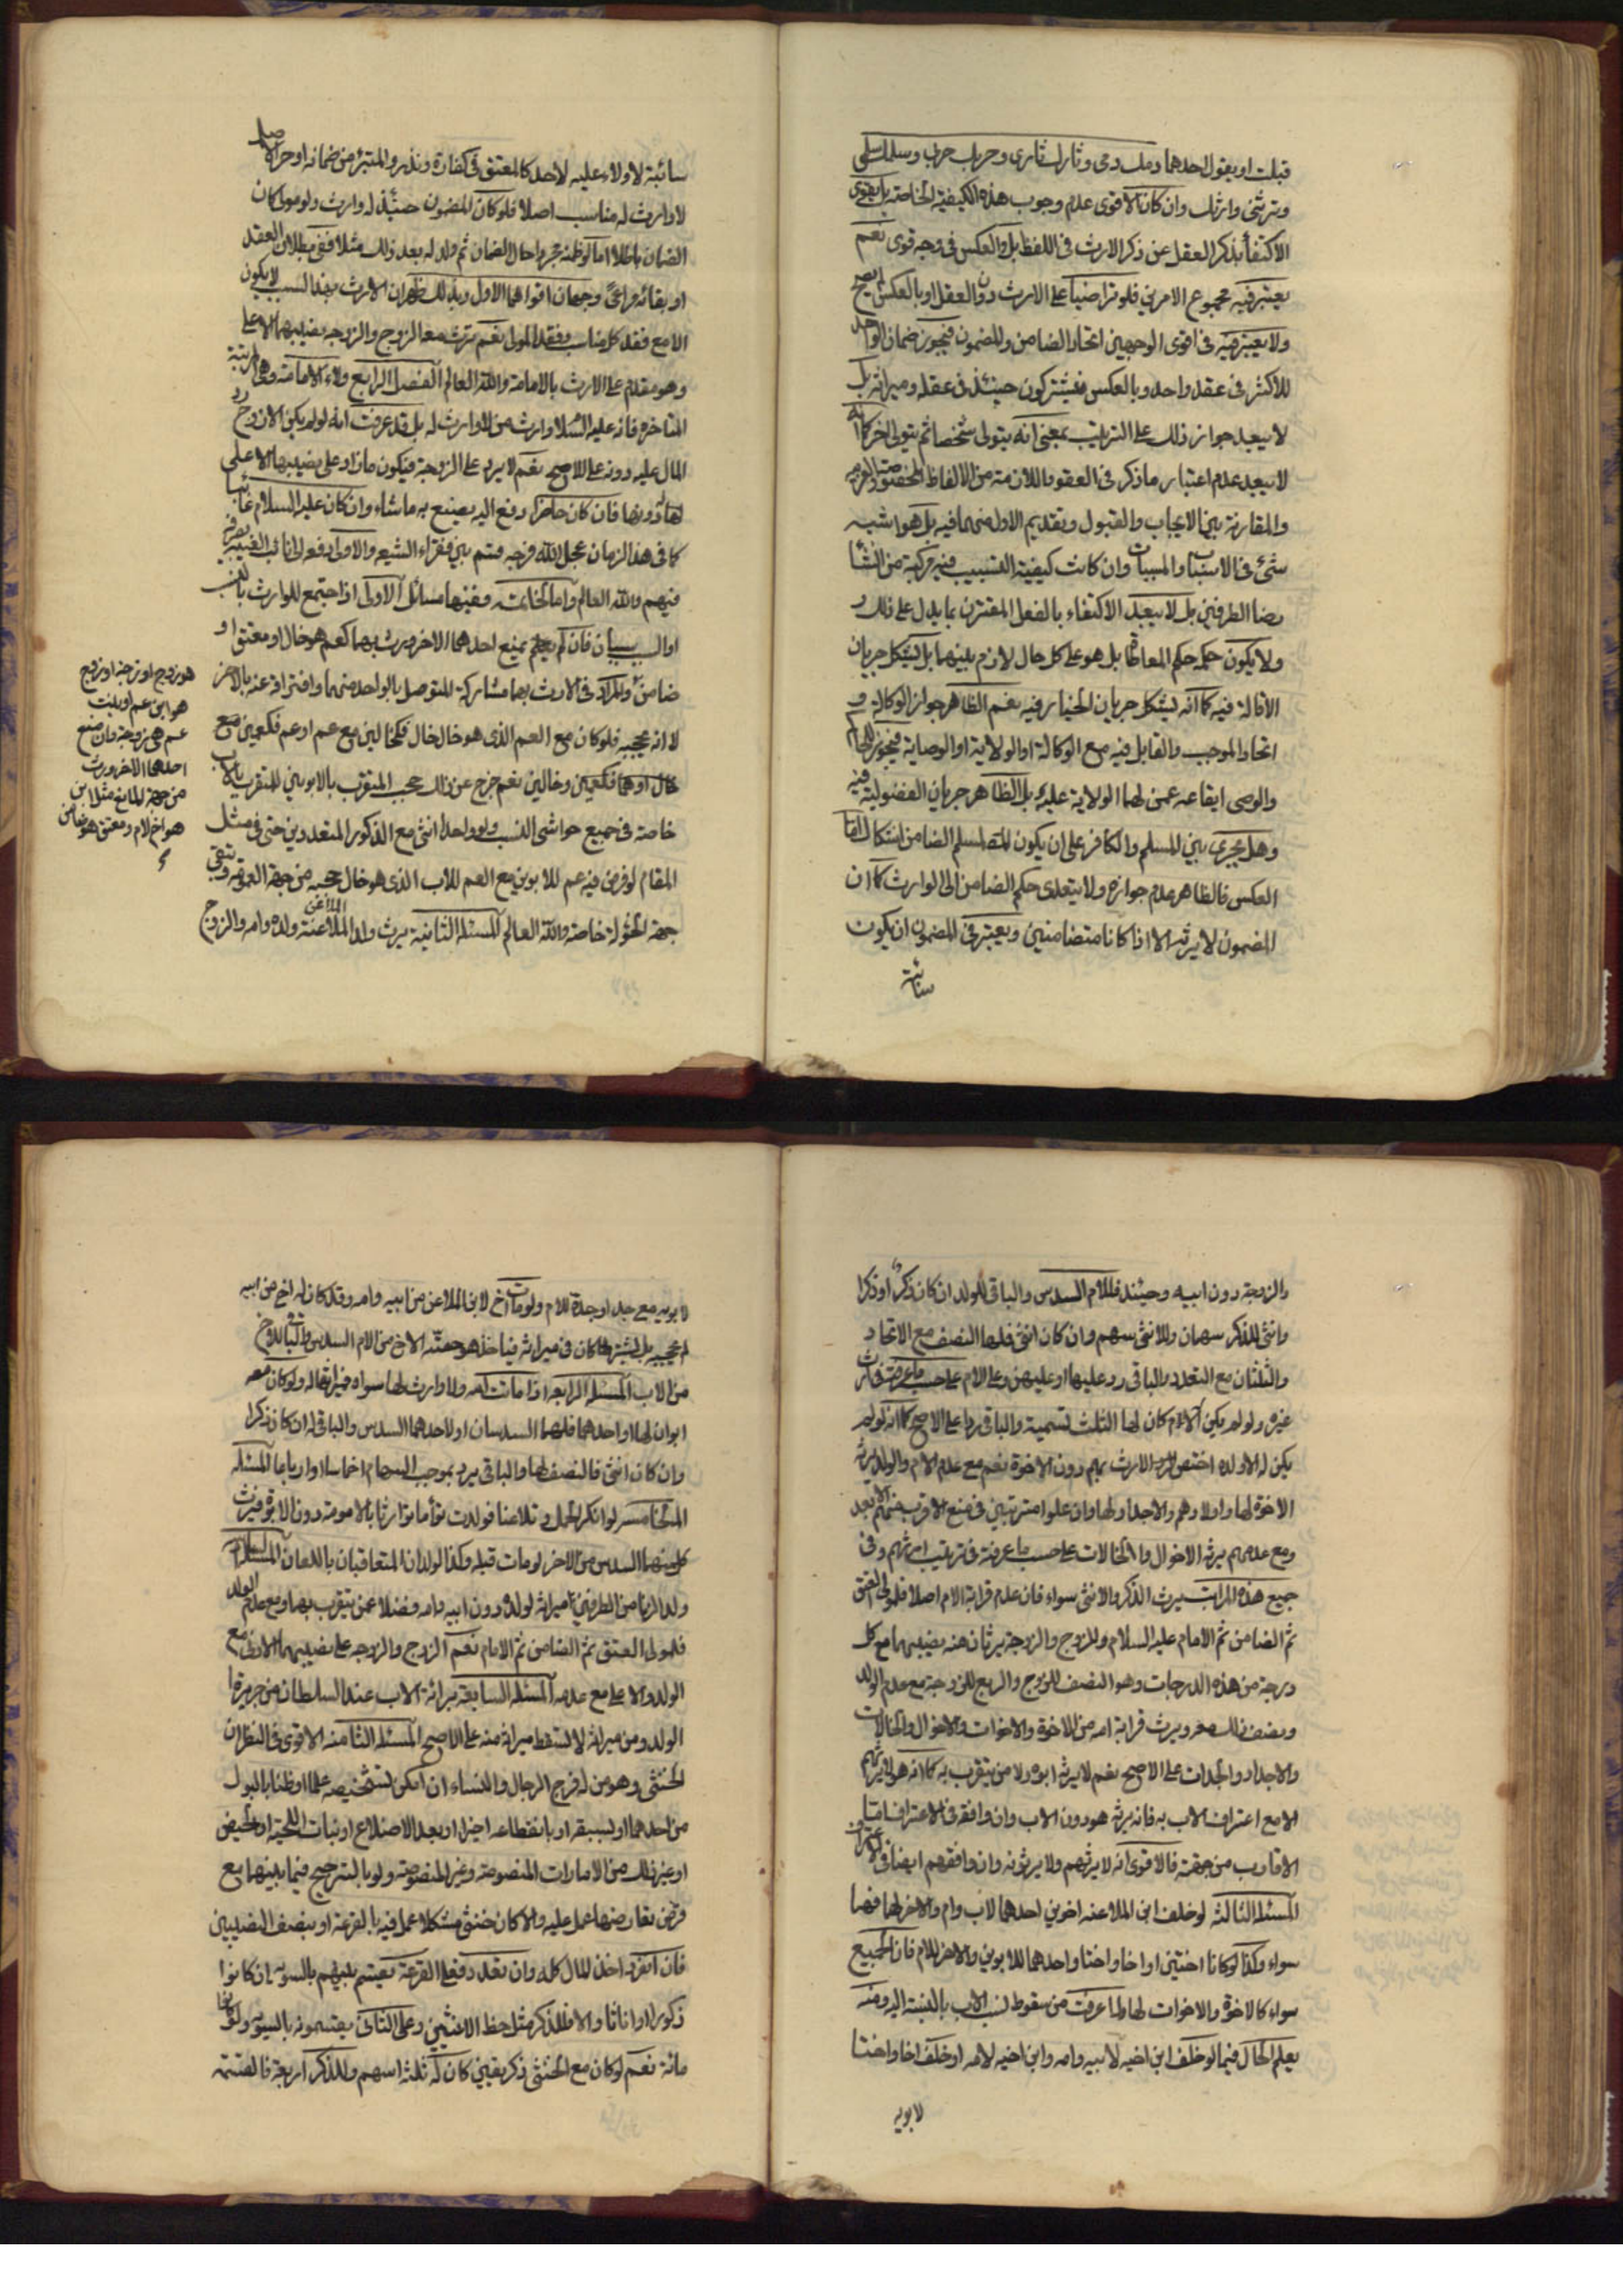 قبلت او يقول احدهما دمك دمى وثارك ثارى وحربك حربى وسلمك سلمى
وترثنى وارثك وان كان الاقوى عدم وجوب هذه الكيفية الخاصة بل يقوى
الاكتفاء بذكر العقل عن ذكر الارث فى اللفظ بل والعكس فى وجه قوى نعم
يعتبر فيه مجموع الامرين فلو تراضيا على الارث دون العقل او بالعكس لم يصح
ولا يعتبر فيه فى اقوى الوجهين اتحاد الضامن والمضمون فيجوز ضمان الواحد
للاكثر فى عقد واحد وبالعكس فيشتركون حينئذ فى عقله وميراثه بل
لا يبعد جواز ذلك على الترتيب بمعنى انه يتولى شخصا ثم يتولى اخر كما انه
لا يبعد عدم اعتبار ما ذكر فى العقود اللازمة من الالفاظ المخصوصة والعربيه
والمقارنة بين الايجاب والقبول وتقديم الاول منهما فيه بل هو اشبه
شئ فى الاسباب والمسببات وان كانت كيفية التسبيب فيه مركبة من انشا
رضا الطرفين بل لا يبعد الاكتفاء بالفعل المقترن بما يدل على ذلك
ولا يكون حكمه حكم المعاطاة بل هو على كل حال لازم بينهما بل يشكل جريان
الاقالة فيه كما انه يشكل جريان الخيار فيه نعم الظاهر جواز الوكالة و
اتحاد الموجب والقابل فيه مع الوكالة او الولاية او الوصاية فيجوز للحاكم
والوصى ايقاعه عمن لهما الولاية عليه بل الظاهر جريان الفضولية فيه
وهل يجرى بين المسلم والكافر على ان يكون المسلم الضامن اشكال اما
العكس فالظاهر عدم جوازه ولا يتعدى حكم الضامن الى الوارث كما ان
المضمون لا يرثه الا اذا كانا متضامنين ويعتبر فى المضمون ان يكون
سائبة
سائبة لا ولاء عليه لاحد كالمعتق فى كفارة ونذر والمتبرئ من ضمانه او حر الاصل
لا وارث له مناسب اصلا فلو كان المضمون حينئذ له وارث ولو مولى كان
الضمان باطلا اما لو ظنه مجردا حال الضمان ثم ولد له بعد ذلك مثلا ففى بطلان العقد
او بقائه مراعى وجهان اقواهما الاول وبذلك ظهر ان الارث بهذا السبب لا يكون
الا مع فقد كل مناسب وفقد المولى نعم يرث معه الزوج والزوجة نصيبهما الاعلى
وهو مقدم على الارث بالامامة والله العالم الفصل الرابع ولاء الامامة وهى المرتبة
المتاخرة فانه عليه السلام وارث من لا وارث له بل قد عرفت انه لو لم يكن الا زوج رد
المال عليه دونه على الاصح نعم لا يرد على الزوجة فيكون ما زاد على نصيبها الاعلى
لها له دونها فان كان حاضرا دفع اليه يصنع به ما شاء وان كان عليه السلام غائبا
كما فى هذا الزمان عجل الله فرجه قسم بين فقراء الشيعه والاولى دفعه الى نائب الغيبة يصرفه
فيهم والله العالم واما الخاتمه ففيها مسائل الاولى اذا اجتمع للوارث بالنسب
او السبب سببان فان لم يمنع احدهما الاخر ورث بهما كعم هو خال او معتق او
ضامن والمراد فى الارث بهما مشاركة المتوصل بالواحد منهما وافتراقه عنه بالاخر
لا انه يحجبه فلو كان مع العم الذى هو خال خال فكخالين مع عم او عم فكعمين مع
خال او هما فكعمين وخالين نعم خرج عن ذلك حجب المتقرب بالابوين للمتقرب بالاب
خاصة فى جميع حواشى النسب ولو واحدا انثى مع الذكور المتعددين حتى فى مثل
المقام لو فرض فيه عم للابوين مع العم للاب الذى هو خال حجبه من جهة العمومة وتبقى
جهة الخؤلة خاصة والله العالم المسئلة الثانية يرث ولد الملاعنة ولده وامه والزوج
الملاعن
هو زوج او زوجة او زوج
هو ابن عم او بنت
عم هى زوجة وان منع
احدهما الاخر ورث
من جهة المانع مثل ابن
هو اخ لام ومعتق هو ضامن
والزوجة دون ابيه وحينئذ فللام السدس والباقى للولد ان كان ذكرا او ذكرا
وانثى للذكر سهمان وللانثى سهم وان كان انثى فلها النصف مع الاتحاد
والثلثان مع التعدد والباقى رد عليها او عليهن وعلى الام على حسب ما عرفته فى ارث
غيره ولو لم يكن الا الام كان لها الثلث تسمية والباقى ردا على الاصح كما انه لو لم
يكن له الا ولده اختص الارث بهم دون الاخوة نعم مع عدم الام والولد يرثه
الاخوة لها واولادهم والاجداد لها وان علوا مترتبين فى منع الاقرب منهم الابعد
ومع عدمهم يرثه الاخوال والخالات على حسب ما عرفته فى ترتيب ارثهم وفى
جميع هذه المراتب يرث الذكر والانثى سواء فان عدم قرابة الام اصلا فلمولى العتق
ثم الضامن ثم الامام عليه السلام وللزوج والزوجة يرثان منه نصيبهما مع كل
درجة من هذه الدرجات وهو النصف للزوج والربع للزوجة مع عدم الولد
ونصف ذلك معه ويرث قرابة امه من الاخوة والاخوات والاخوال والخالات
والاجداد والجدات على الاصح نعم لا يرثه ابوه ولا من يتقرب به كما انه هو لا يرثهم
الا مع اعتراف الاب به فانه يرثه هو دون الاب وان وافقه فى الاعتراف اما
الاقارب من جهته فالاقوى انه لا يرثهم ولا يرثونه وان وافقهم ايضا فى الاعتراف
المسئلة الثالثة لو خلف ابن الملاعنه اخوين احدهما لاب وام والاخر لها فهما
سواء وكذا لو كانا اختين او اخا واختا واحدهما للابوين والاخر للام فان الجميع
سواء كالاخوة والاخوات لها لما عرفت من سقوط نسب الاب بالنسبة اليه ومنه
يعلم الحال فيما لو خلف ابن اخيه لابيه وامه وابن اخيه لامه او خلف اخا واختا
لابويه
لابويه مع جد او جدة للام ولو مات اخ لابن الملاعن من ابيه وامه وقد كان له اخ من ابيه
لم يحجبه بل يشتركان فى ميراثه فياخذ هو حصة الاخ من الام السدس والباقى للاخ
من الاب المسئلة الرابعه اذا ماتت امه ولا وارث لها سواه فميراثها له ولو كان معه
ابوان لها او احدهما فلهما السدسان او لاحدهما السدس والباقى له ان كان ذكرا
وان كان انثى فالنصف لها والباقى يرد بموجب السهام اخماسا او ارباعا المسئلة
الخامسة لو انكر الحمل وتلاعنا فولدت توأما توارثا بالامومة دون الابوة فيرث
كل منهما السدس من الاخر لو مات قبله وكذا الولدان المتعاقبان باللعان المسئلة السادسة
ولد الزنا من الطرفين ميراثه لولده دون ابيه وامه فضلا عمن يتقرب بهما ومع عدم الولد
فلمولى العتق ثم الضامن ثم الامام نعم الزوج والزوجه على نصيبهما الادنى مع
الولد والاعلى مع عدمه المسئلة السابعة برائة الاب عند السلطان من جريرة
الولد ومن ميراثه لا تسقط ميراثه منه على الاصح المسئلة الثامنه الاقوى فى النظر ان
الخنثى وهو من له فرج الرجال والنساء ان امكن تشخيصه علما او ظنا بالبول
من احدهما او لسبقه او بانقطاعه اخيرا او بعد الاضلاع او نبات اللحية او الحيض
او غير ذلك من الامارات المنصوصة وغير المنصوصة ولو بالترجيح فيما بينهما مع
فرض تعارضها عمل عليه والا كان خنثى مشكلا عمل فيه بالقرعة او بنصف النصيبين
فان انفرد اخذ المال كله وان تعدد فعلى القرعة يقسم بينهم بالسويه ان كانوا
ذكورا او اناثا والا فللذكر مثل حظ الانثيين وعلى الثانى يقتسمونه بالسوية ولو كانوا
مائة نعم لو كان مع الخنثى ذكر بيقين كان له ثلثة اسهم وللذكر اربعة فالقسمة